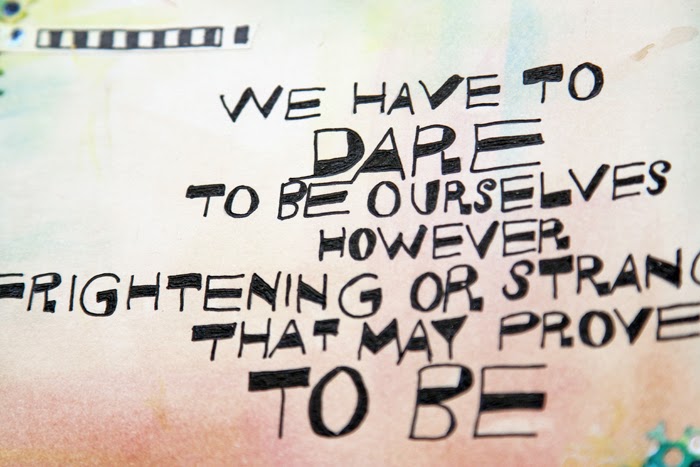 WE HAVE TO
DARE
TO BE OURSELVES
HOWEVER
FRIGHTENING OR STRANG
THAT MAY PROVE
TO BE